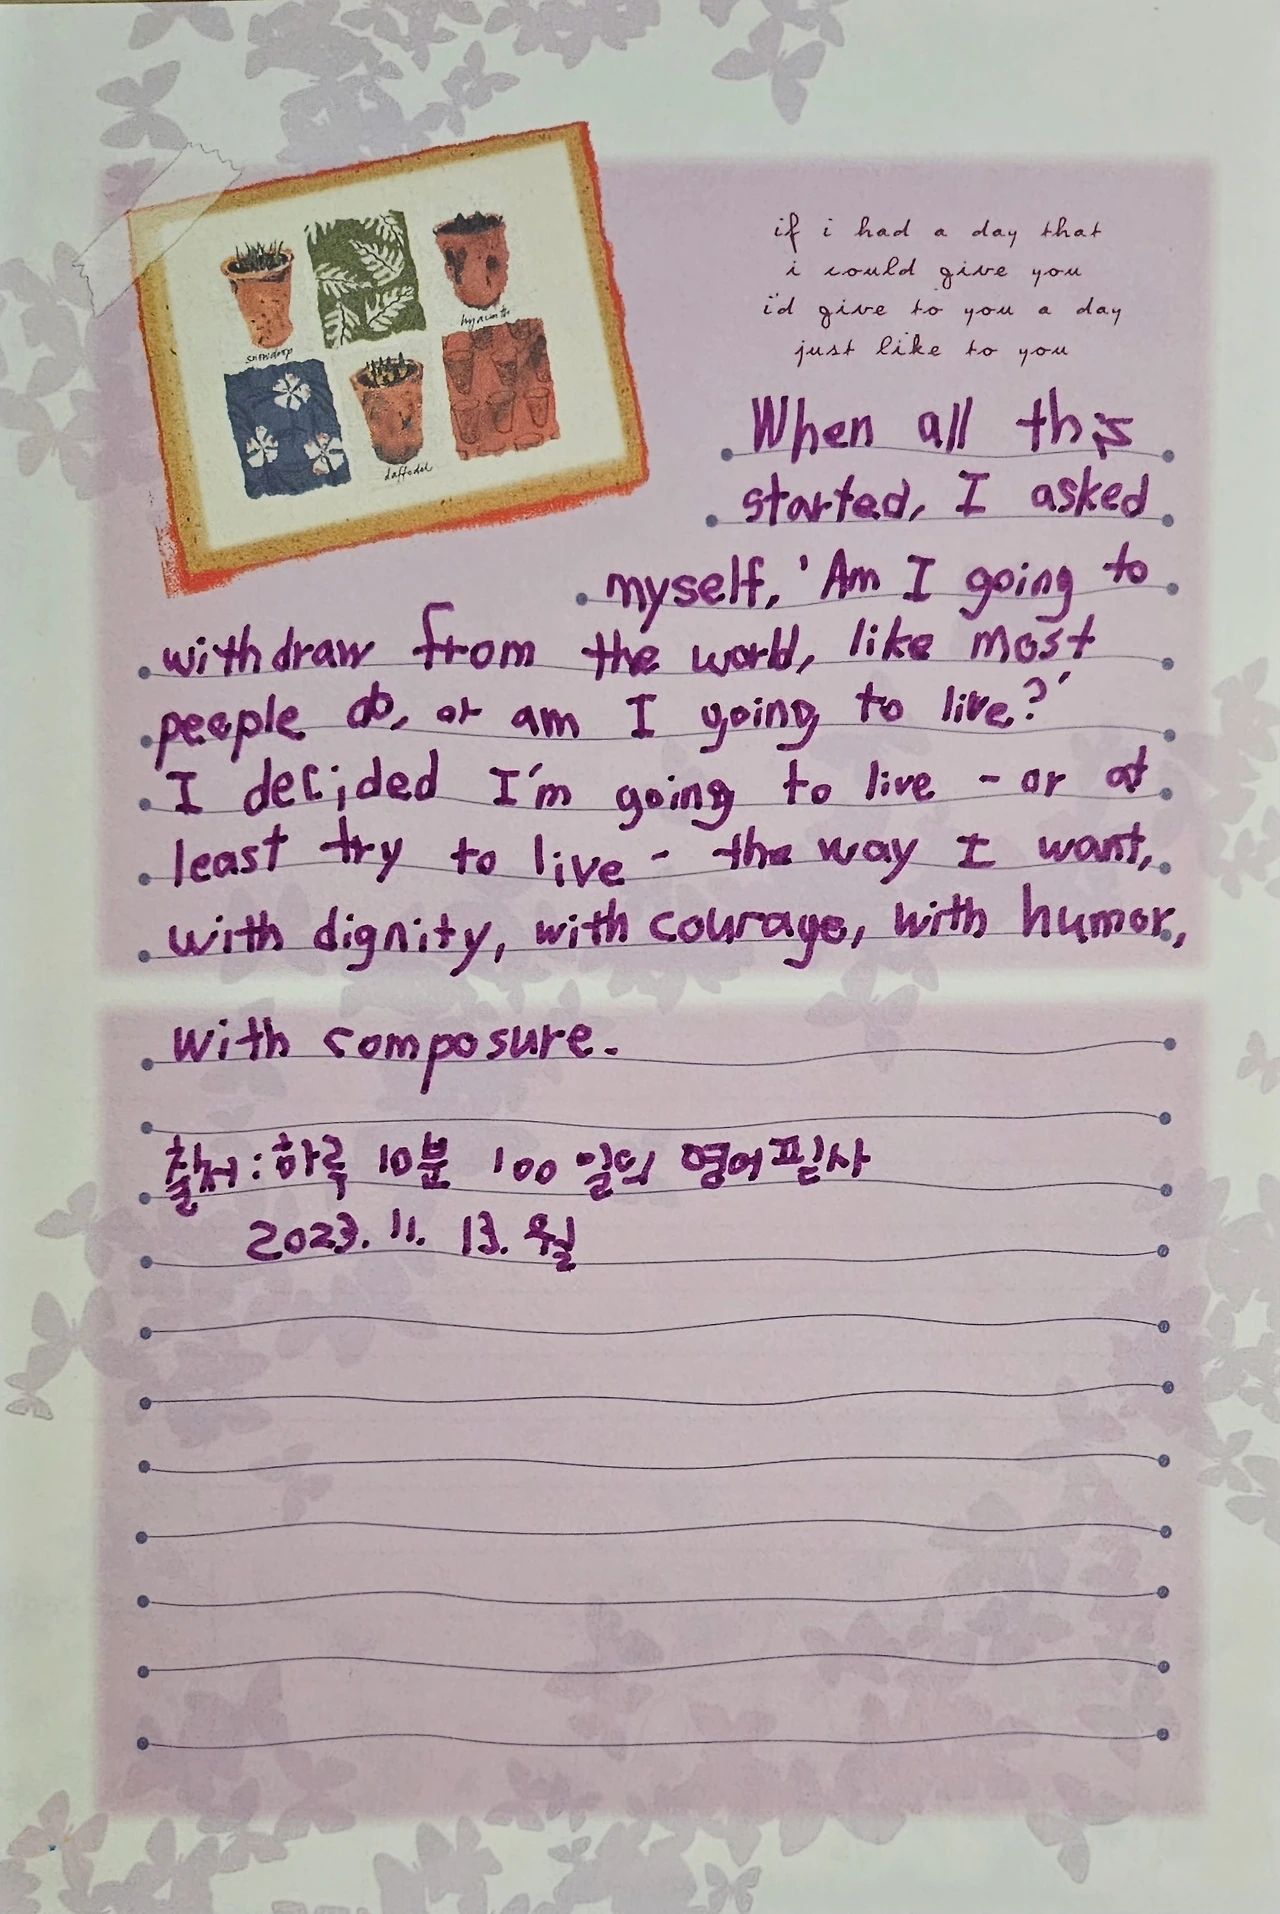 snowdrop
hyacinth
daffodil
if i had a day that
i could give you
i'd give to you a day
just like to you
When all this
started, I asked
myself, 'Am I going to
withdraw from the world, like most
people do, or am I going to live?'
I decided I'm going to live - or at
least try to live - the way I want,
with dignity, with courage, with humor,
with composure.
출처:하루 10분 100일의 영어필사
2023. 11. 13. 월